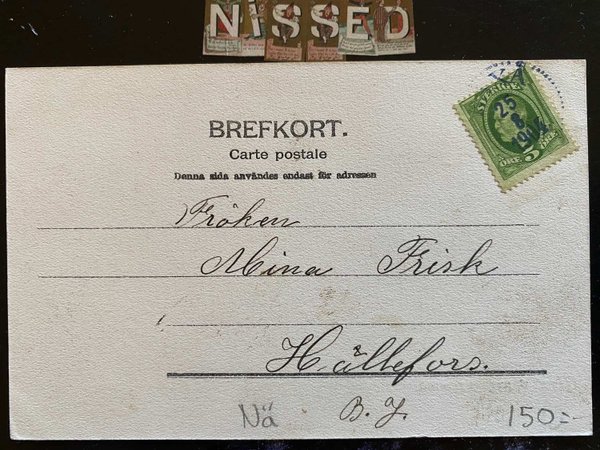 NISSED
BREFKORT.
Carte postale
Denna sida användes endast för adressen
SVERIGE
25
8
ÖRE 5 ÖRE
Fröken
Mina Frisk
Hällefors.
B. J.
Nä
150:-